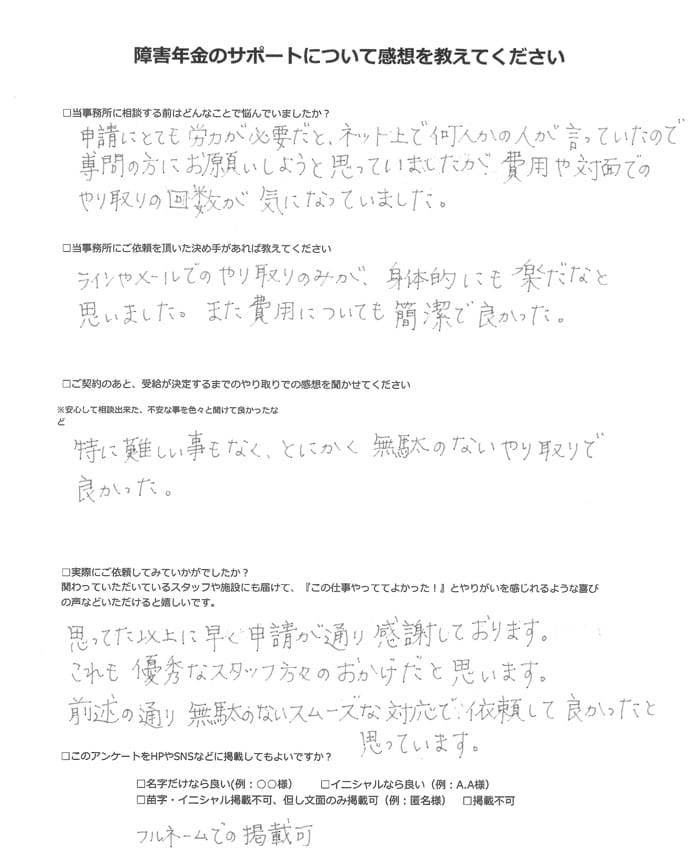 障害年金のサポートについて感想を教えてください
□当事務所に相談する前はどんなことで悩んでいましたか？
申請にとても労力が必要だと、ネット上で何人かの人が言っていたので
専門の方にお願いしようと思っていましたが、費用や対面での
やり取りの回数が気になっていました。
□当事務所にご依頼を頂いた決め手があれば教えてください
ラインやメールでのやり取りのみが、身体的にも楽だなと
思いました。また費用についても簡潔で良かった。
□ご契約のあと、受給が決定するまでのやり取りでの感想を聞かせてください
※安心して相談出来た、不安な事を色々と聞けて良かったな
ど
特に難しい事もなく、とにかく無駄のないやり取りで
良かった。
□実際にご依頼してみていかがでしたか？
関わっていただいているスタッフや施設にも届けて、『この仕事やっててよかった！』とやりがいを感じれるような喜び
の声などいただけると嬉しいです。
思ってた以上に早く申請が通り感謝しております。
これも優秀なスタッフ方々のおかげだと思います。
前述の通り無駄のないスムーズな対応で、依頼して良かったと
思っています。
□このアンケートをHPやSNSなどに掲載してもよいですか？
□名字だけなら良い(例：〇〇様） □イニシャルなら良い（例：A.A様）
□苗字・イニシャル掲載不可、但し文面のみ掲載可（例：匿名様） □掲載不可
フルネームでの掲載可